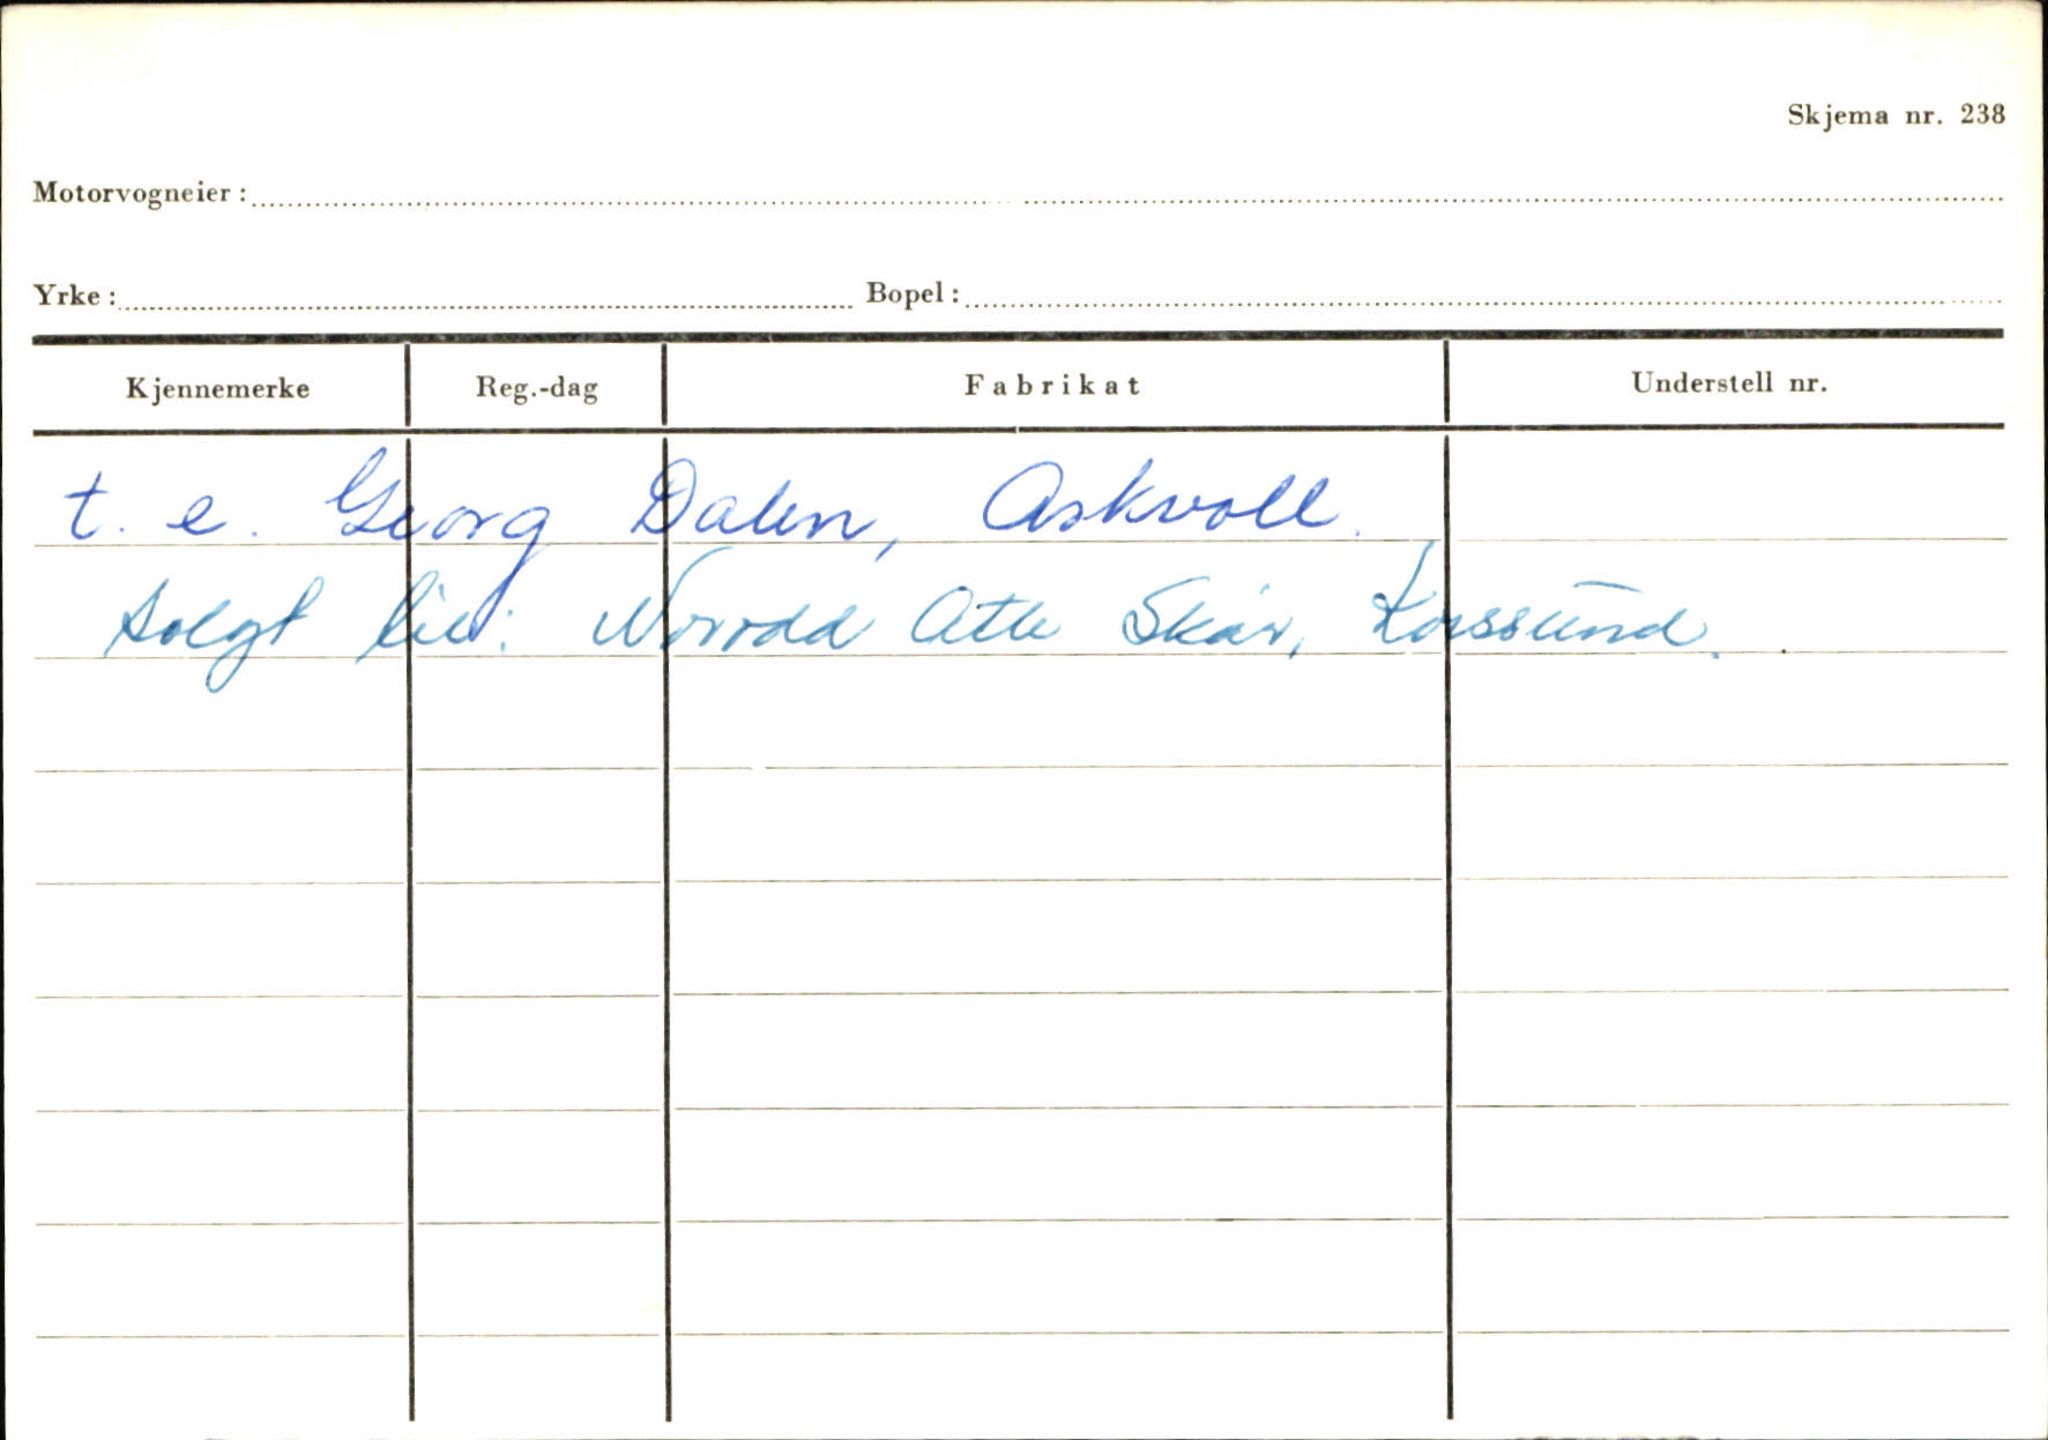 Skjema nr. 238
Motorvogneier:
Yrke: Bopel:
Kjennemerke Reg.-dag Fabrikat Understell nr.
t. e. Georg Dalen, Askvoll.
Solgt til: Norodd Atle Skår, Korssund.